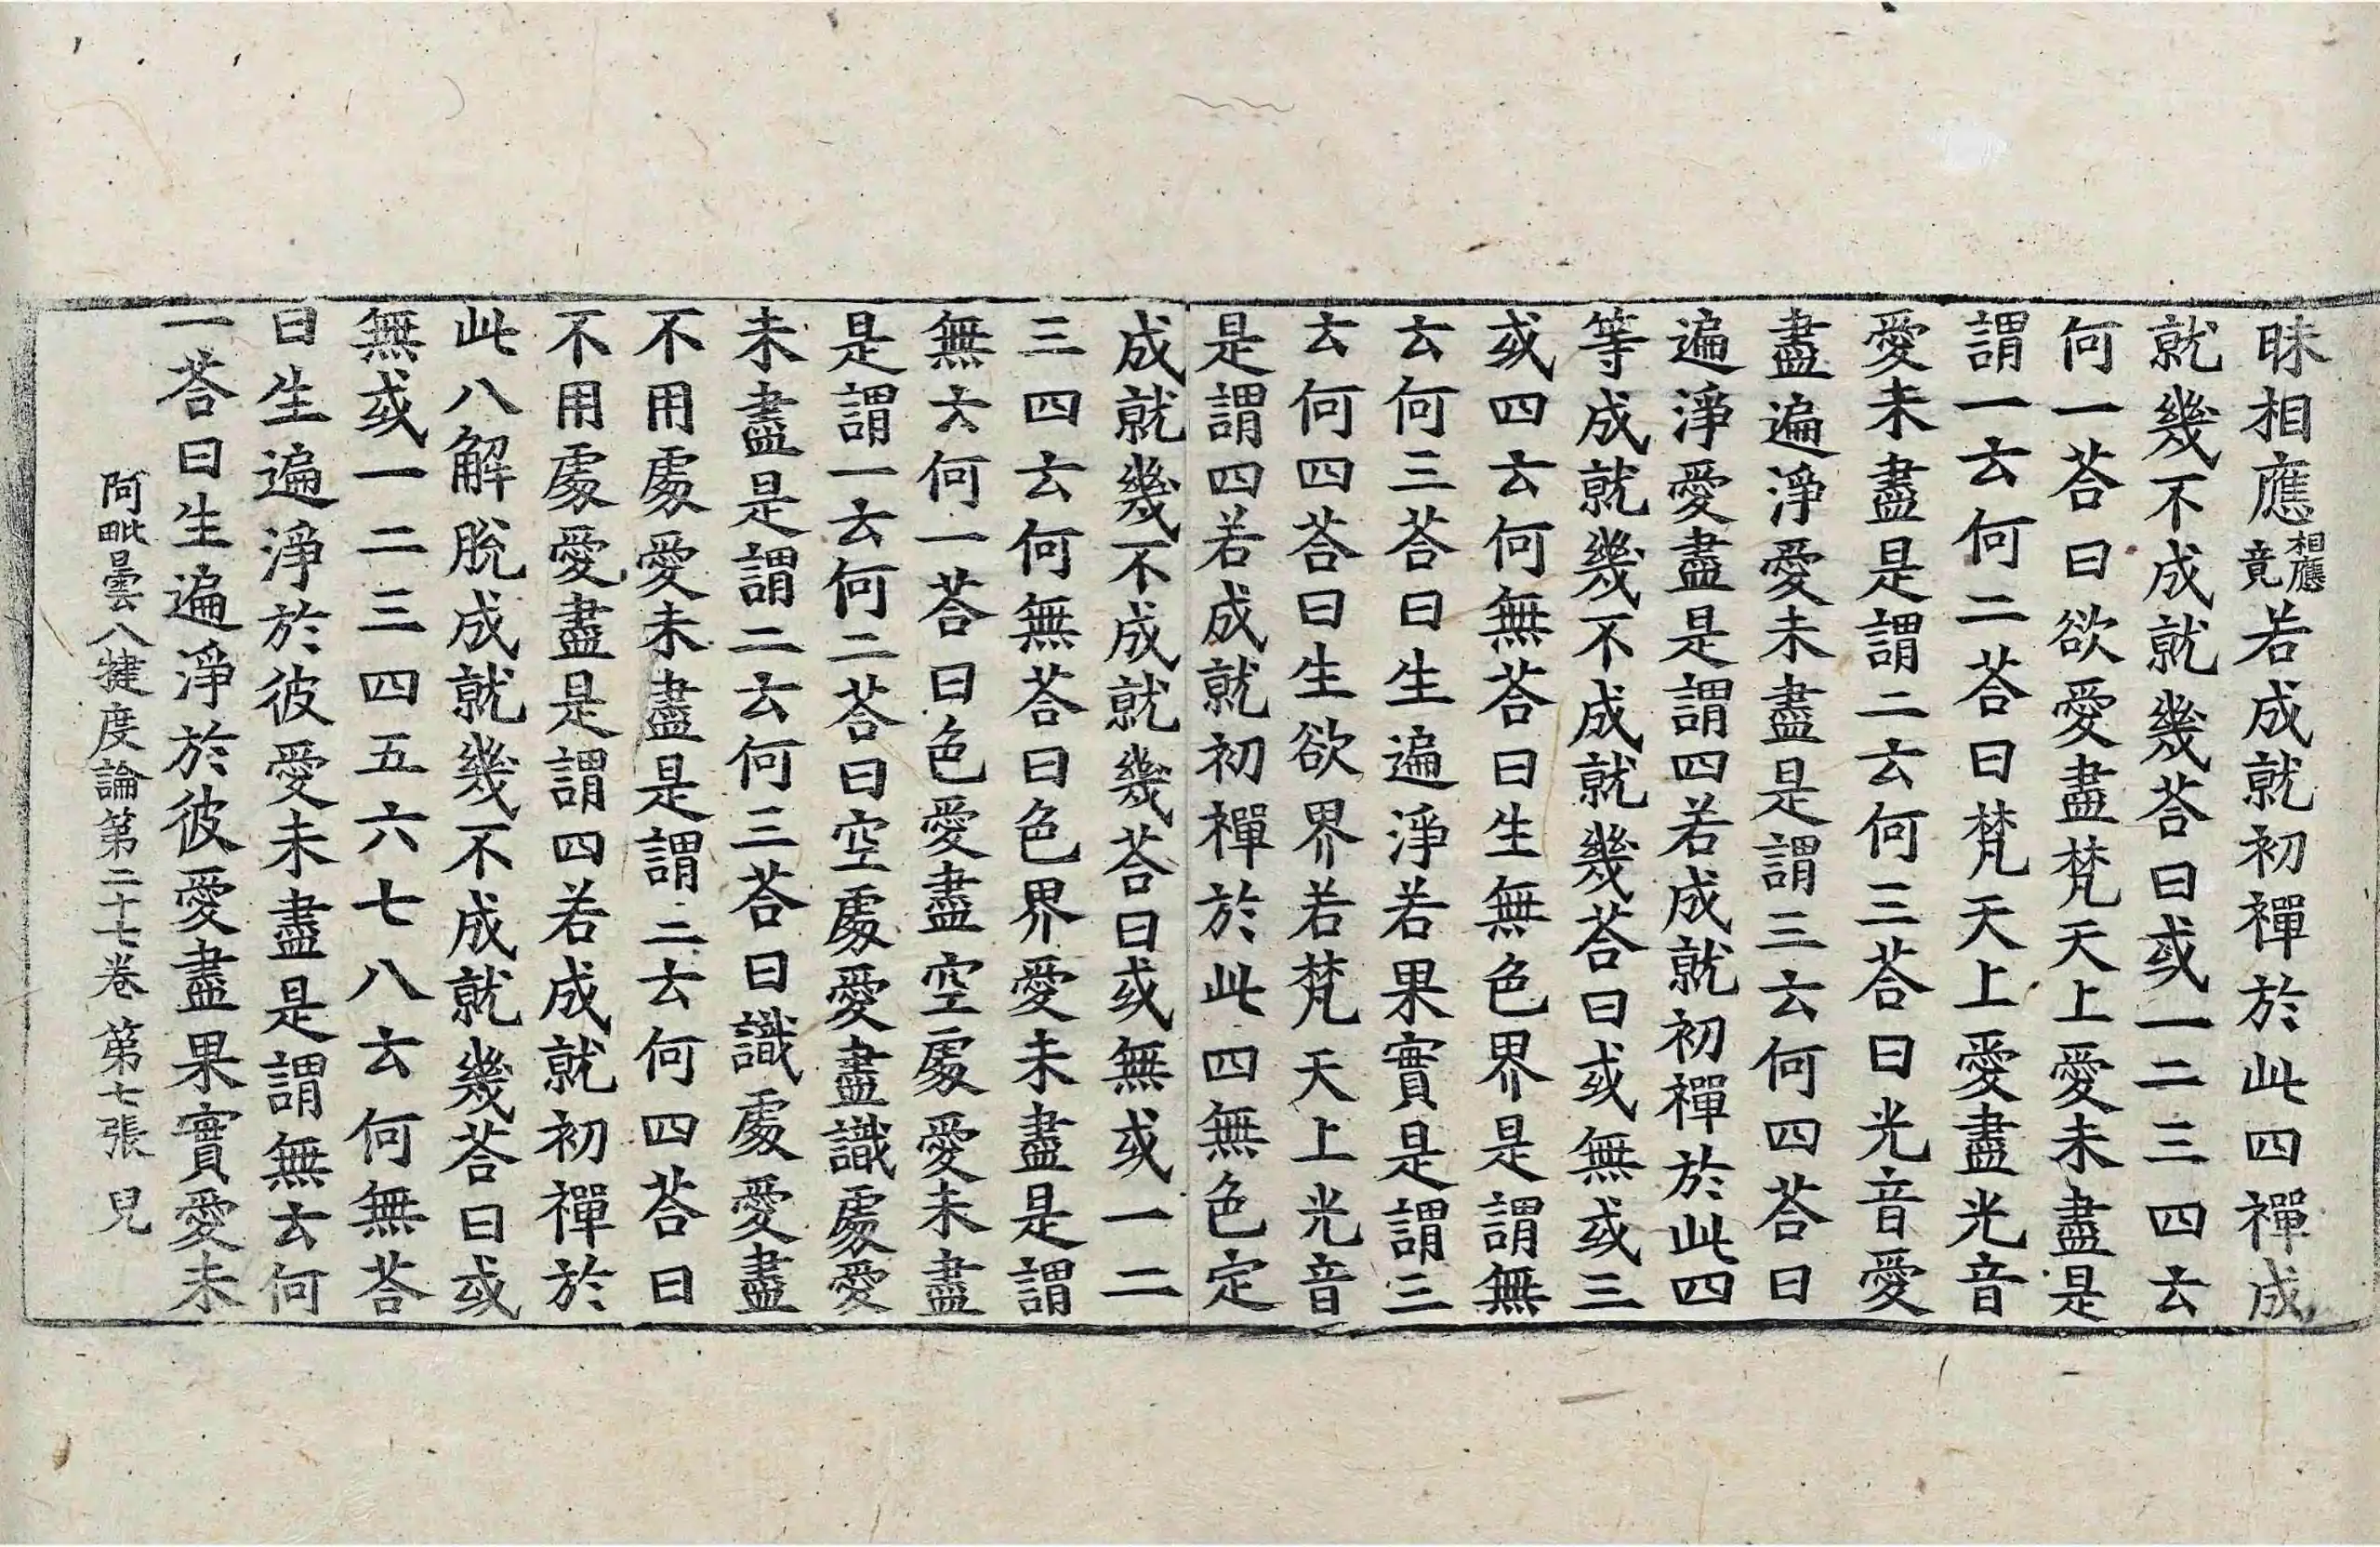 昧相應相應竟若成就初禪於此四禪成
就幾不成就幾荅曰或一二三四云
何一荅曰欲愛盡梵天上愛未盡是
謂一云何二荅曰梵天上愛盡光音
愛未盡是謂二云何三荅曰光音愛
盡遍淨愛未盡是謂三云何四荅曰
遍淨愛盡是謂四若成就初禪於此四
等成就幾不成就幾荅曰或無或三
或四云何無荅曰生無色界是謂無
云何三荅曰生遍淨若果實是謂三
云何四荅曰生欲界若梵天上光音
是謂四若成就初禪於此四無色定
成就幾不成就幾荅曰或無或一二
三四云何無荅曰色界愛未盡是謂
無云何一荅曰色愛盡空處愛未盡
是謂一云何二荅曰空處愛盡識處愛
未盡是謂二云何三荅曰識處愛盡
不用處愛未盡是謂三云何四荅曰
不用處愛盡是謂四若成就初禪於
此八解脫成就幾不成就幾荅曰或
無或一二三四五六七八云何無荅
曰生遍淨於彼愛未盡是謂無云何
一荅曰生遍淨於彼愛盡果實愛未
阿毗曇八揵度論第二十七卷 第七張 兒